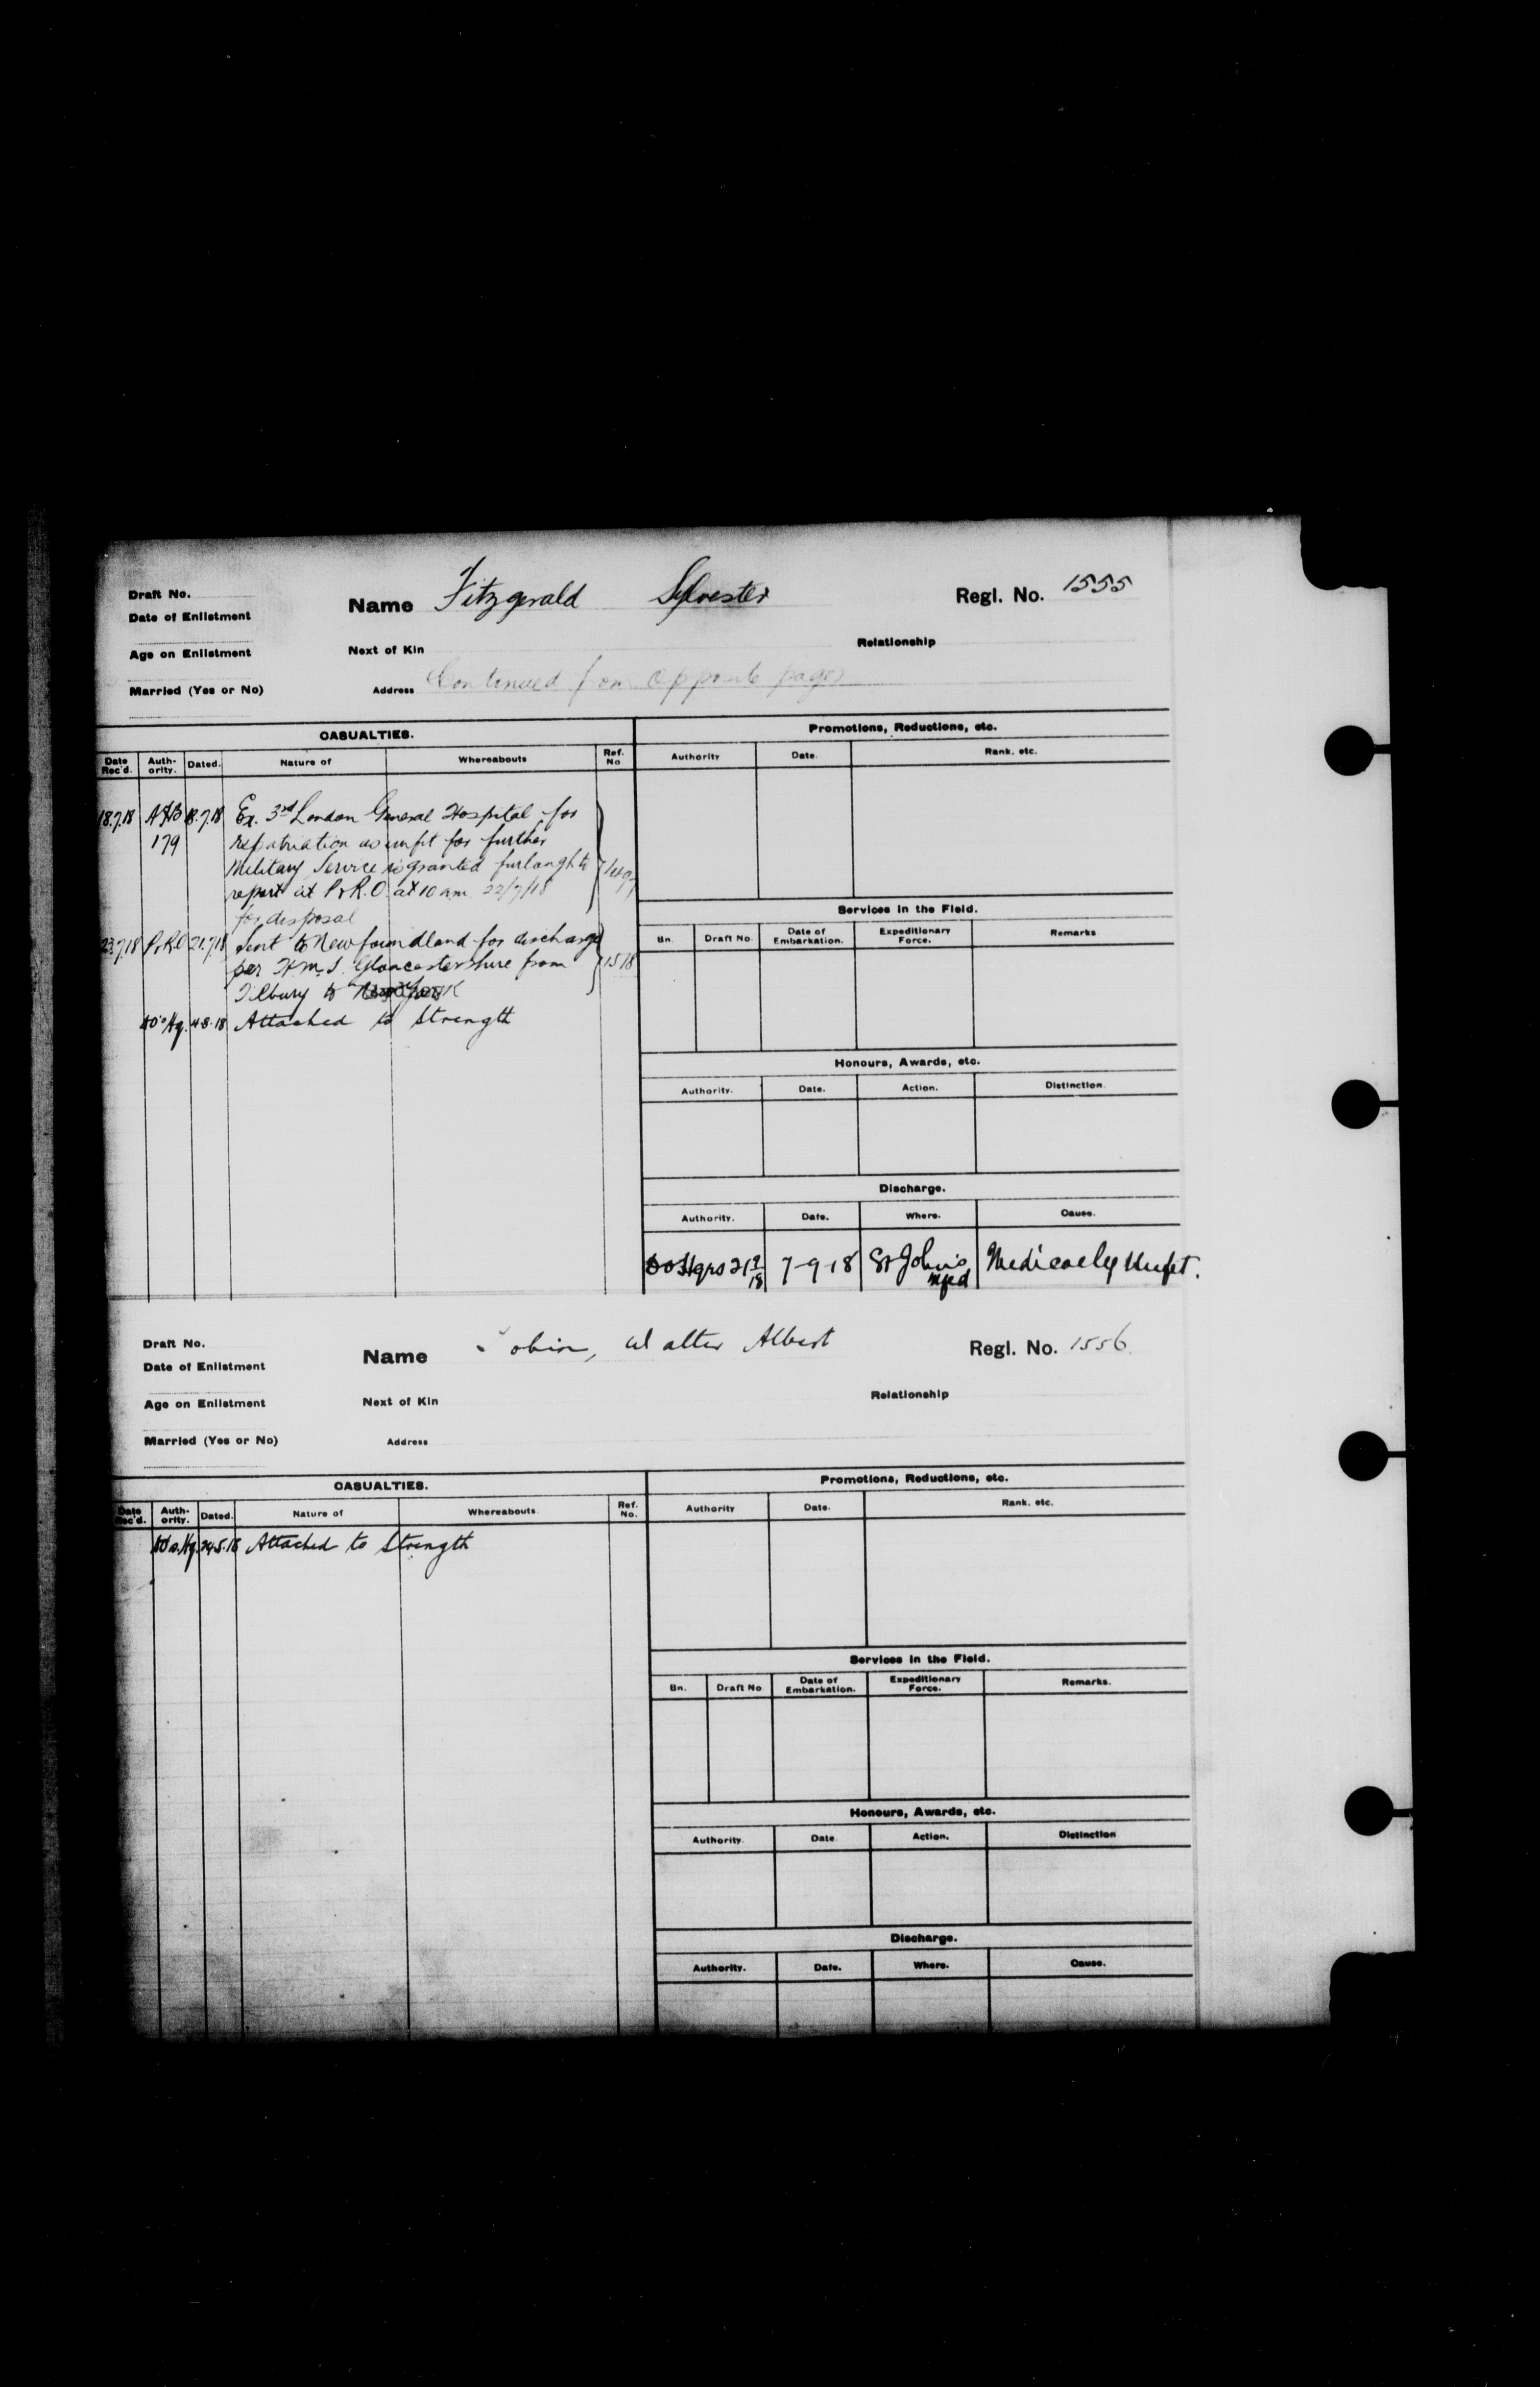 Draft No.
Name Fitzgerald Sylvester Regl. No. 1555
Date of Enlistment
Age on Enlistment Next of Kin Relationship
Continued from opposite page
Married (Yes or No) Address
CASUALTIES. Promotions, Reductions, etc.
Date Rec'd. Auth-ority. Dated. Nature of Whereabouts Ref. No Authority Date. Rank. etc.
18.7.18 18.7.18 Ex. 3rd London General Hospital for
179 repatriation as unfit for further
Military Service is granted furlough to
report at P&R.O. at 10 am 22/7/18
for disposal
23.7.18 P&R.O 21.7.18 Sent to Newfoundland for discharge
per H.M.S. Gloucestershire from 1518
Tilbury to
4-8-18 Attached to Strength
Services in the Field.
Bn. Draft No. Date of Embarkation. Expeditionary Force. Remarks
Honours, Awards, etc.
Authority. Date. Action. Distinction.
Discharge.
Authority. Date. Where. Cause.
7-9-18 St John's Nfld Medically Unfit.
Draft No.
Name Tobin, Walter Albert Regl. No. 1556
Date of Enlistment
Age on Enlistment Next of Kin Relationship
Married (Yes or No) Address
CASUALTIES. Promotions, Reductions, etc.
Date Rec'd. Auth-ority. Dated. Nature of Whereabouts. Ref. No. Authority Date. Rank. etc.
24.5.18 Attached to Strength
Services in the Field.
Bn. Draft No Date of Embarkation. Expeditionary Force. Remarks.
Honours, Awards, etc.
Authority. Date. Action. Distinction
Discharge.
Authority. Date. Where. Cause.